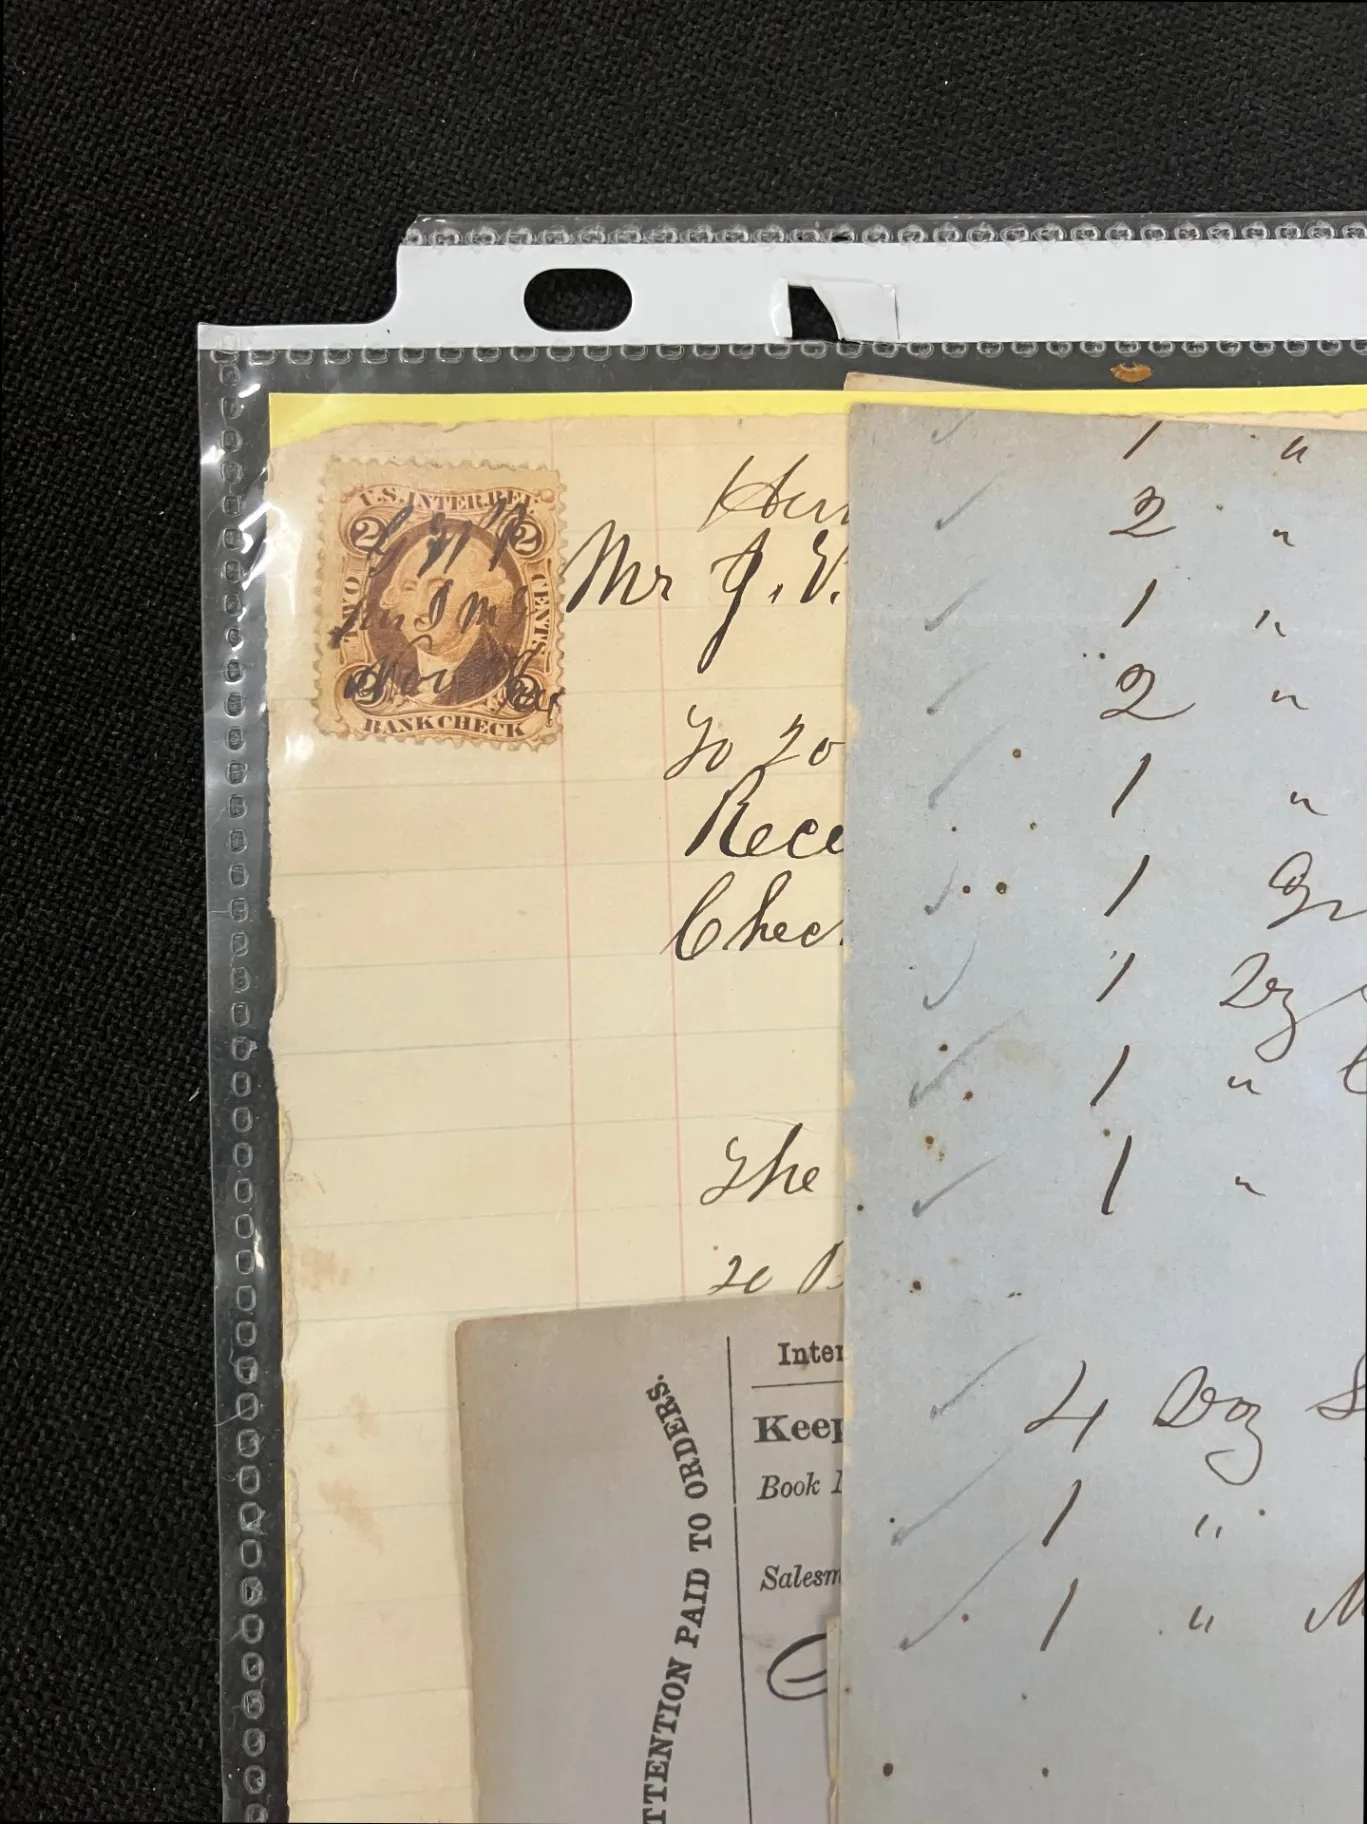 U.S. INTER. REV.
2 2
TWO CENTS
2 2
BANK CHECK
Mr J. V.
To 20
Rece
Chec
The
20
Inter
Keep
Book
Salesm
ATTENTION PAID TO ORDERS.
1 "
2 "
1 "
2 "
1 "
1
1 Doz
1 "
1 "
4 Doz S
1 "
1 " M